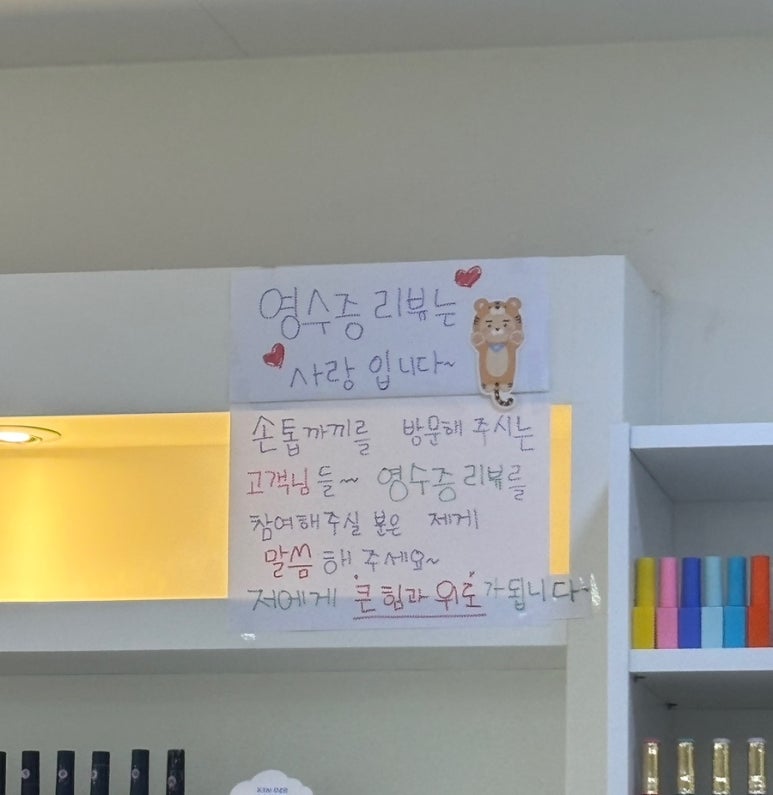 영수증 리뷰는
사랑 입니다~
손톱까끼를 방문해 주시는
고객님들~ 영수증 리뷰를
참여해주실 분은 제게
말씀해 주세요~
저에게 큰 힘과 위로가 됩니다~